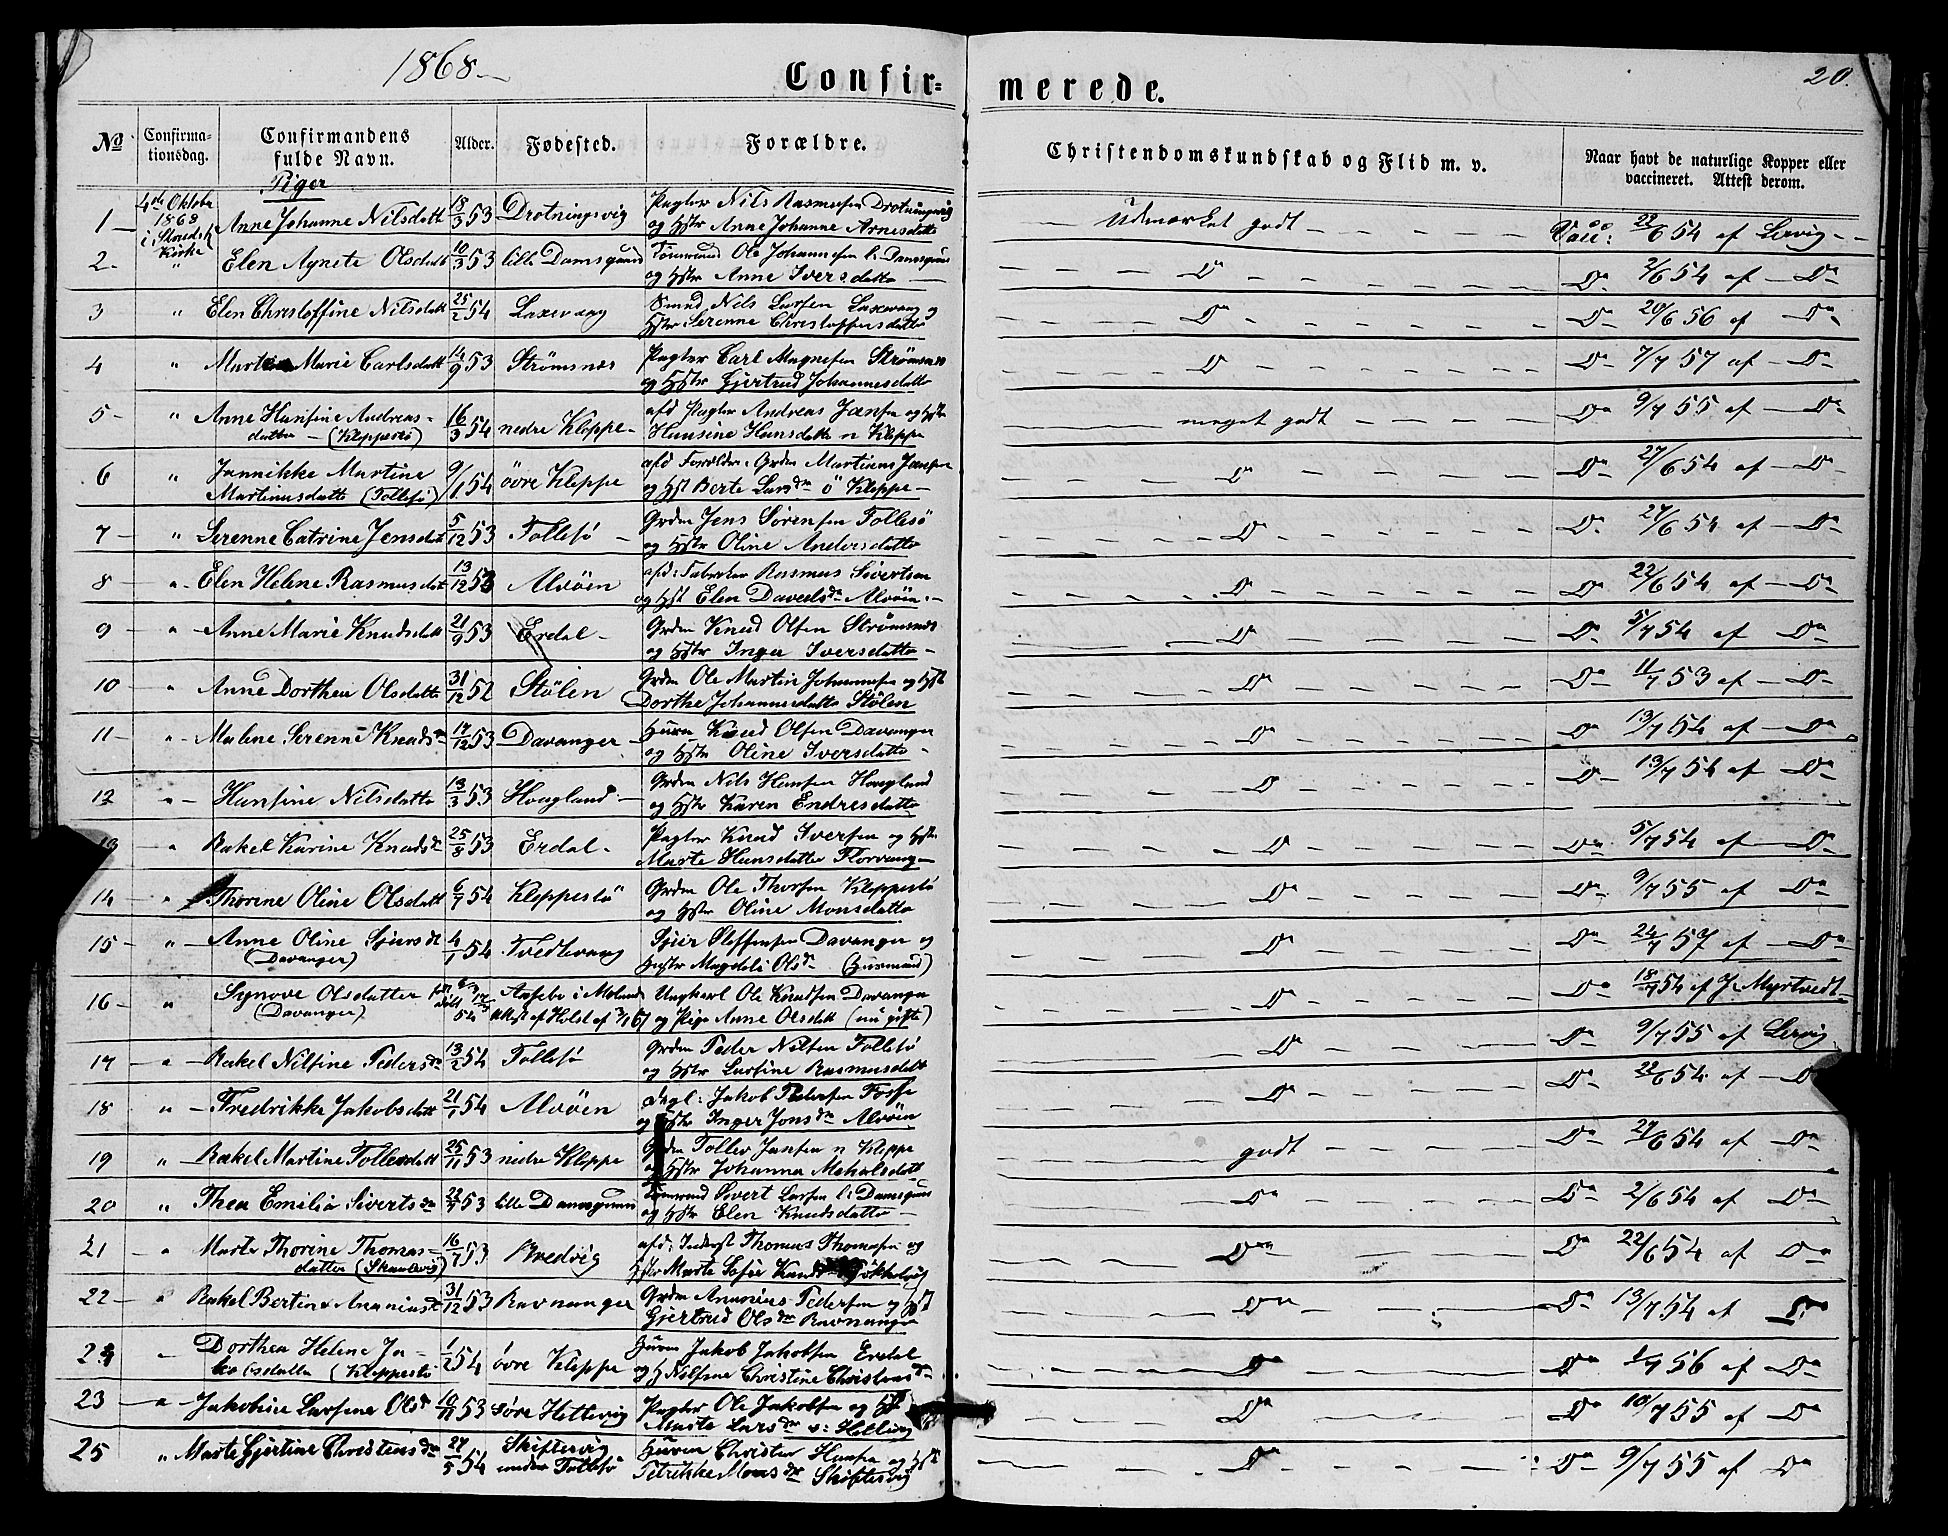 1868
20.
Confir= merede.
No
Confirma-
tionsdag.
Confirmandens
fulde Navn.
Alder.
Fødested.
Forældre.
Christendomskundskab og Flid m. v.
Naar havt de naturlige Kopper eller
vaccineret. Attest derom.
Piger
1 4de Oktober 1868 i Kirke Anne Johanne Nilsdatt 18/3 53 Drotningsvig Pagter Nils Rasmusen Drotningsvig
og Hstr Anne Johanne Arnesdatte
Udmærket godt Vacc: 22/6 54 af Lervig
2 " Elen Agnete Olsdatt 10/3 53 lille Damsgaard Tømmand Ole Johannesen l. Damsgaar
og Hstr Anne Iversdatte
Do Do 2/6 54 af Do
3 " Elen Christoffine Nilsdatt 25/2 54 Laxevaag Smed Nils Larsen Laxevaag og
Hstr Serenne Christoffersdatte
Do Do 20/6 56 af Do
4 " Marie Carlsdatt 14/9 53 Strømsnes Pagter Carl Magnesen Strømsnes
og Hstr Gjertrud Johannesdatte
Do Do 7/7 57 af Do
5 " Anne Hansine Andreas-
datter (Klippesø) 16/3 54 nedre Kleppe afd Pagter Andreas Jansen og Hstr
Hansine Hansdatte n Kleppe
meget godt Do 9/7 55 af Do
6 " Jannikke Martine
Martinusdatte (Follesø) 9/1 54 övre Kleppe afd Forældre: Grdm Martinus Jansen
og Hst Berte Larsdr ö Kleppe
Do Do 27/6 54 af Do
7 " Serenne Catrine Jensdat 5/12 53 Follesø Grdm Jens Sørensen Follesö
og Hstr Oline Andersdatte
Do Do 27/6 54 af Do
8 " Elen Helene Rasmusdat 13/12 53 Alvöen afd: Rasmus Sivertsen
og Hst Elen Davidsdr Alvöen
Do Do 22/6 54 af Do
9 " Anne Marie Knudsdatt 21/9 53 Erdal Grdm Knud Olsen Strømsnes
og Hstr Inger Iversdatte
Do Do 5/7 54 af Do
10 " Anne Dorthea Olsdatte 31/12 52 Stölen Grdm Ole Martin Johannesen og Hst
Dorthe Johannesdatte Stölen
Do Do 11/7 53 af Do
11 " Malene Serenne Knudsdr 17/12 53 Davanger Husm Knud Olsen Davanger
og Hstr Oline Iversdatte
Do Do 13/7 54 af Do
12 " Hansine Nilsdatte 13/3 53 Hoagland Grdm Nils Hansen Hoagland
og Hstr Karen Endresdatte
Do Do 13/7 54 af Do
13 " Rakel Karine Knudsdr 25/8 53 Erdal Pagter Knud Iversen og Hstr
Marte Hansdatter Florvaag
Do Do 5/7 54 af Do
14 " Thorine Oline Olsdatt 6/7 54 Kleppestö Grdm Ole Thorsen Kleppestö
og Hstr Oline Monsdatte
Do Do 9/7 55 af Do
15 " Anne Oline Sjursdt
(Davanger) 4/1 54 Tvedtevaag Sjur Steffensen Davanger og
Hustr Magdeli Olsdr (Husmand)
Do Do 24/7 57 af Do
16 " Synove Olsdatter
(Davanger) Meland Attest af Holst af Ungkarl Ole Knudsen Davanger
og Pige Anne Olsdatt (nu gifte)
Do Do 18/7 54 af J. Myrtvedt
17 " Rakel Nilsine Pedersdr 13/2 54 Follesö Grdm Peder Nilsen Follesö
og Hstr Larsine Rasmusdatt
Do Do 9/7 55 af Lervig
18 " Fredrikke Jakobsdatt 21/1 54 Alvöen Dagl: Jakob Pedersen Fosse
og Hstr Inger Jonsdr Alvöen
Do Do 22/6 54 af Do
19 " Rakel Martine Tollevsdatt 25/11 53 nedre Kleppe Grdm Tollev Jansen n Kleppe
og Hstr Johanna Mikalsdatt
godt Do 27/6 54 af Do
20 " Thea Emilia Sivertsdr 53 lille Damsgaard Tømmand Sivert Larsen l: Damsgaar
og Hstr Elen Knudsdatte
Do Do 2/6 54 af Do
21 " Marte Thorine Thomas-
datter (Skaalevig) 16/7 53 Bredvig afd: Inderst Thomas Thomasen og
Hstr Marte Sofie
Do Do 22/6 54 af Do
22 " Rakel Bertine Ananiasdt 31/12 53 Ravnanger Grdm Ananias Pedersen og Hst
Gjertrud Olsdr Ravnanger
Do Do 13/7 54 af Do
24 " Dorthea Helene Ja-
kobsdatte (Kleppestö 1/2 54 övre Kleppe Husm Jakob Jakobsen Erdal
og H Nilsine Christine Christensdr
Do Do 1/7 56 af Do
23 " Jakobine Larsine Olsdr 10/11 53 søre Hettevig Pagter Ole Jakobsen og Hst
Marte Larsdr s: Hettevig
Do Do 10/7 55 af Do
25 " Marte Gjertine Christensdr 27/5 54 Skiftesvig
under Follesö Husm Christen Hansen og Hst
Petrikke Monsdr Skiftesvig
Do Do 9/7 55 af Do